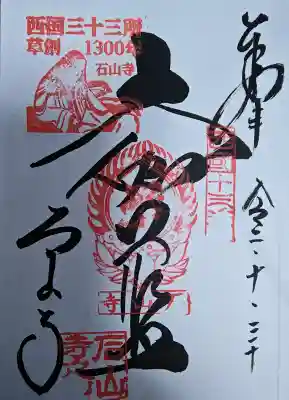 西国三十三所
草創 1300年
石山寺
奉拝
令二・十・三十
大伽藍
石山寺